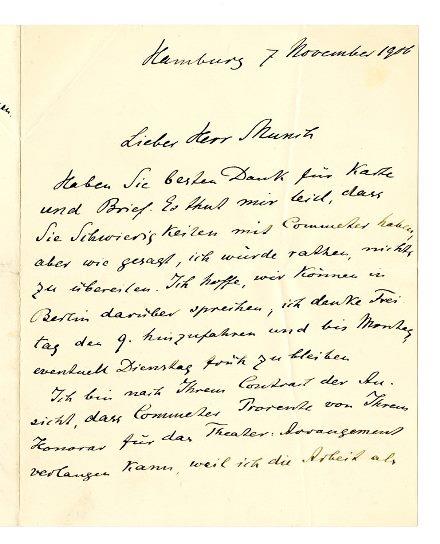 Hamburg 7 November 1906
Lieber Herr Munch
Haben Sie besten Dank für Karte
und Brief. Es thut mir leid, dass
Sie Schwierigkeiten mit Commeter haben,
aber wie gesagt, ich würde rathen, nichts
zu übereilen. Ich hoffe, wir können in
Berlin darüber sprechen, ich denke Frei
tag den 9. hinzufahren und bis Montag
eventuell Dienstag früh zu bleiben
Ich bin nach Ihrem Contract der An-
sicht, dass Commeter Procente von Ihrem
Honorar für das Theater-Arrangement
verlangen kann, weil ich die Arbeit als